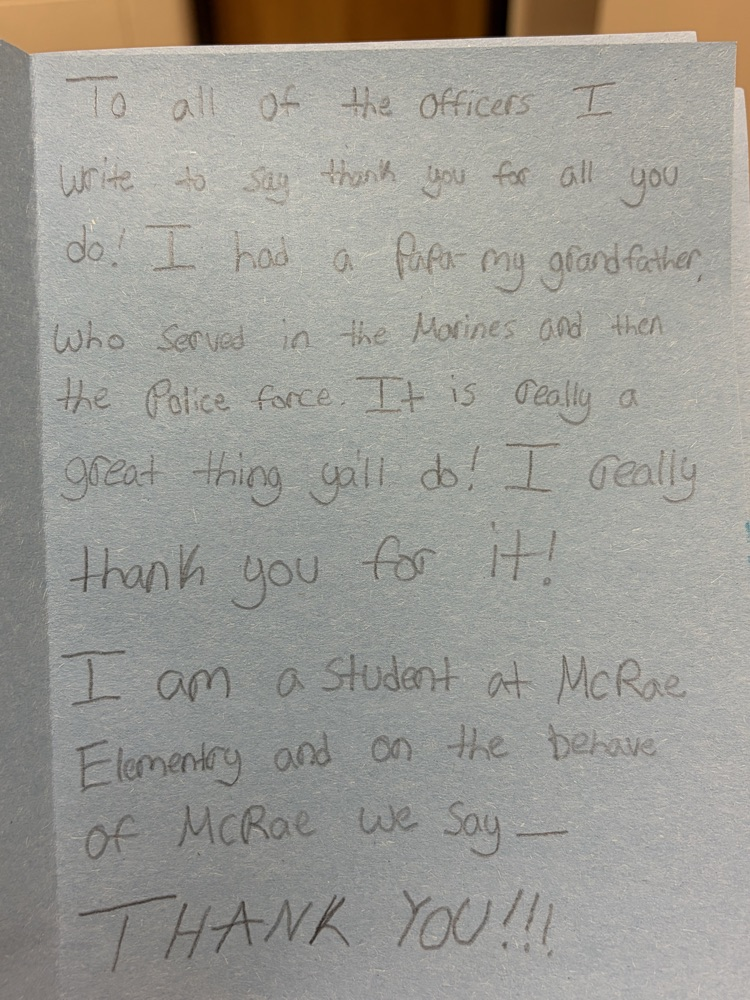 To all of the officers I
write to say thank you for all you
do! I had a Papa-my grandfather,
who served in the Marines and then
the Police force. It is really a
great thing ya'll do! I really
thank you for it!
I am a student at McRae
Elementry and on the behave
of McRae we say —
THANK YOU!!!